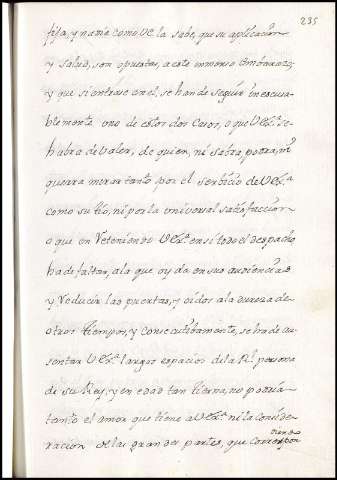 235
fija, y nadie como V.E. la sabe, que su aplicacion
y salud, son opuestas, a este inmenso embarazo,
y que si entrase en el, se han de seguir inescusa-
blemente uno de estos dos casos, o que V.Exª. se
habra de valer, de quien, ni sabra, podra, ni
querra mirar tanto por el serbicio de V.Exª
como su tio, ni por la universal satisfaccion
o que en Reteniendo V.Exª. en si todo el despacho
ha de faltar, a la que oy da en sus audiencias
y Reducir las puertas, y oidos a la dureza de
otros tiempos, y consecutibamente, se ha de au-
sentar V.Exª. largos espacios de la Rl. persona
de su Rey, y en edad tan tierna, no podria
tanto el amor que tiene a V.Exª. ni la conside-
racion de las grandes partes, que correspon